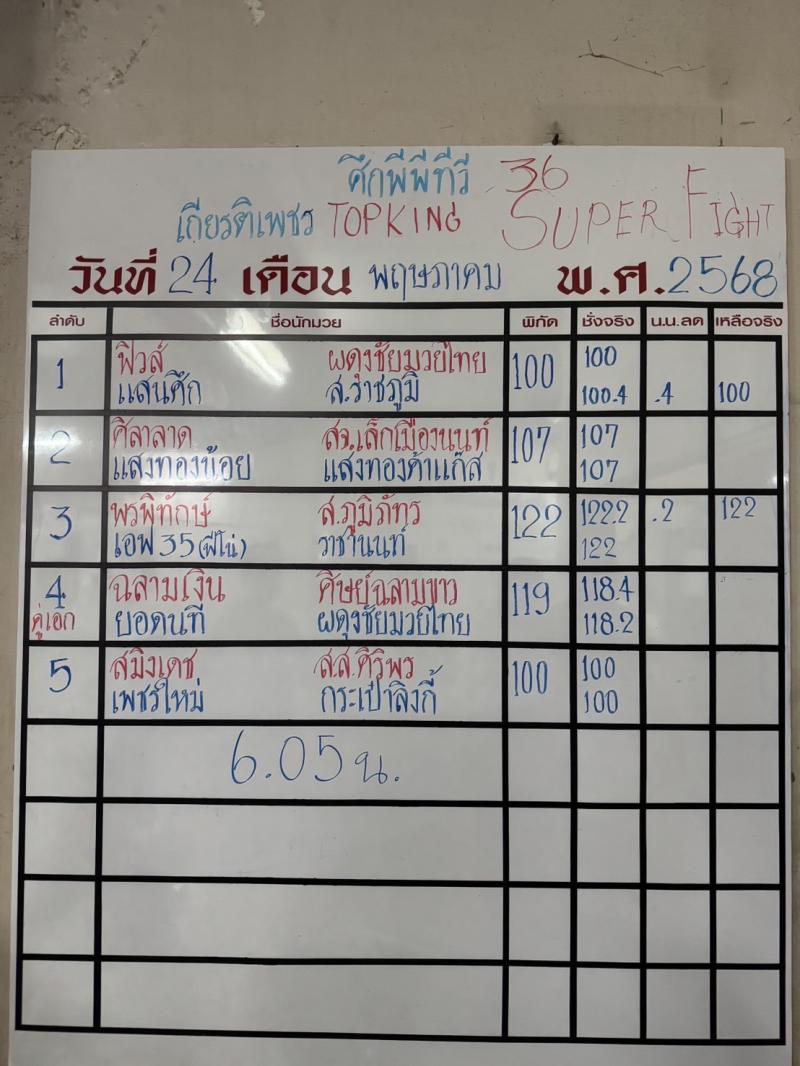 ศึกพีพีทีวี 36
เกียรติเพชร TOPKING SUPER FIGHT
วันที่ 24 เดือน พฤษภาคม พ.ศ.2568
ลำดับ ชื่อนักมวย พิกัด ชั่งจริง น.น.ลด เหลือจริง
1 ฟิวส์ ผดุงชัยมวยไทย 100 100
แสนศึก ส.ราชภูมิ 100.4 .4 100
2 ศิลาลาด สจ.เล็กเมืองนนท์ 107 107
แสงทองน้อย แสงทองค้าแก๊ส 107
3 พรพิทักษ์ ส.ภูมิภัทร 122 122.2 .2 122
เอฟ 35 (ฟีโน่) ราชานนท์ 122
4 ฉลามเงิน ศิษย์ฉลามขาว 119 118.4
คู่เอก ยอดนที ผดุงชัยมวยไทย 118.2
5 สมิงเดช ส.ส.ศิริพร 100 100
เพชรใหม่ กระเป๋าลิงกี้ 100
6.05 น.